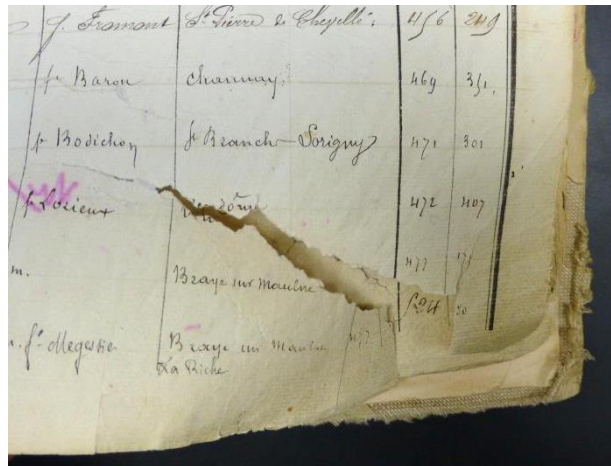 f. Framont St Pierre de Chevillé. 456 249
fe Baron Channay. 469 351.
fe Bodichon fe Branch - Sorigny 471 301
fe Lorieux Vendôme 472 407
m. Braye sur Maulne 477 171
524 20
n. fe Megessier Braye sur Maulne 477
La Riche